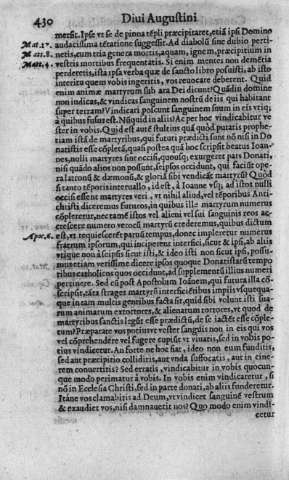 430 Diui Augustini
merſit. Ipſe vt ſe de pinna tēpli præcipitaret, etiā ipſi Domino
Mat.17. audacisſima tētatione ſuggesſit. Ad diabolū ſine dubio perti-
Mat.8. netis, cum tria genera mortis, aquam, ignem, præcipitium in
Mat.4. veſtris mortibus frequentatis. Si enim mentes non dementia
perderetis, iſta ipſa verba quæ de ſancto libro poſuiſti, ab iſto
interitu quem vobis ingeritis, vos reuocare deberent. Quid
enim animæ martyrum ſub ara Dei dicunt? Quſdiu domine
non iudicas, & vindicas ſanguinem noſtrū de iis qui habitant
ſuper terram? Vindicari poſcunt ſanguinem ſuum in eis vtiq;
à quibus fuſus eſt. Nūquid in aliis? Ac per hoc vindicabitur ve
ſter in vobis. Quid eſt aūt ſtultius quā quòd putatis prophe-
tiam iſtā de martyribus, qui futuri prædicti ſunt nō niſi in Do
natiſtis eſſe cōpletā, quaſi poſtea quā hoc ſcripſit beatus Ioan-
nes, nulli martyres ſint occiſi, quouſq; exurgeret pars Donati,
niſi quādo alios non poſſunt, ſeipſos occidunt, qui facūt ope-
ra latronū, & dæmonū, & gloriā ſibi vendicāt martyrū? Quod
ſi tanto tēporis interuallo, id eſt, à Ioanne vſq; ad iſtos nulli
occiſi eſſent martyres veri, vt nihil aliud, vel tēporibus Anti-
chriſti diceremus ſuturos, in quibus ille martyrum numerus
cōpleretur, nec tamē iſtos vel alieni vel ſui ſanguinis reos ac-
creſcere numero veroru martyrū crederemus, quibus dictum
Apoc.6. eſt, vt requieſcerēt pauco tempus, donec impleretur numerus
fratrum ipſorum, qui inciperent interfici, ſicut & ipſi, ab aliis
vtique non à ſeipſis ſicut iſti, & ideo iſti non ſicut ipſi, posſu-
mus etiam verisſime dicere ipſos quoque Donatiſtas tēmpo
ribus catholicos quos occidunt, ad ſupplementū illius numeri
pertinere. Sed cū poſt Apoſtolum Ioānem, qui futura iſta cō-
ſcripſit, tāta ſtrages martyrū interficiētibus impiis vſquequa-
que in tam multis gentibus facta ſit, quid ſibi volunt iſti ſua-
rum animarum extortores, & alienarum tortores, vt quod de
martyribus ſanctis legiſſe eſſe prædictū, de ſe iactēt eſſe cōple-
tum? Præparate vos potius vt veſter ſanguis non in eis qui vos
vel cōprehendēre vel fugere cupiūt vt viuatis, ſed in vobis po-
tius vindicetur. An forte no hoc fat, ideo non eum funditis,
ſed aut præcipitio colliditis, aut vnda ſuffocatis, aut in cine-
rem conuertitis? Sed erratis, vindicabitur in vobis quocun-
que modo perimatur à vobis. In vobis enim vindicaretur, ſi
nō in Eccleſia Chriſti, ſed in parte donati, ab aliis funderetur.
Itáne vos clamabitis ad Deum, vt vindicet ſanguinē veſtrum
& exaudiet vos, niſi damnauerit nos? Quo modo enim vindi-
cetur